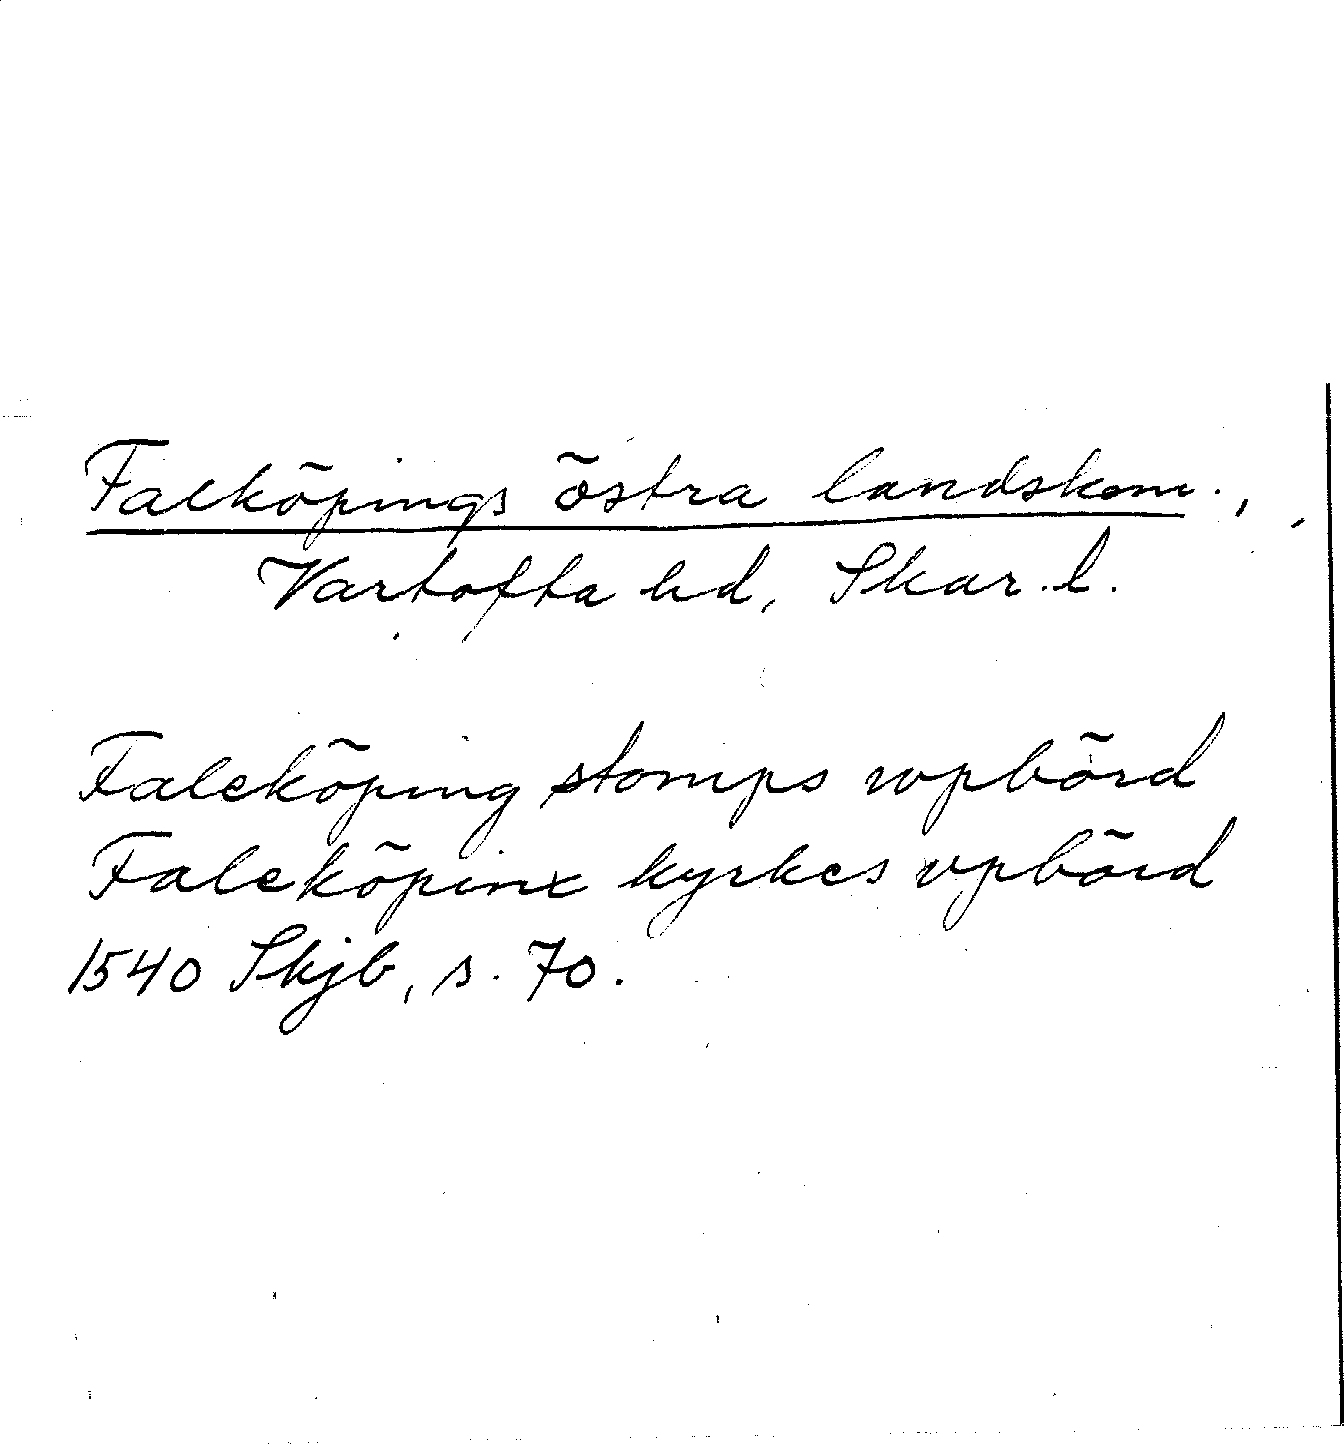 Falköpings östra landskom.,
Vartofta hd, Skar. l.
Faleköping stomps wpbörd
Faleköpinx kyrkes vpbörd
1540 Skjb, s. 70.